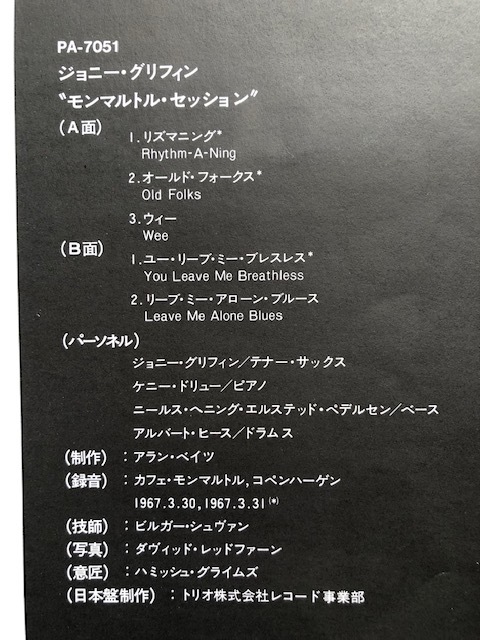 PA-7051
ジョニー・グリフィン
“モンマルトル・セッション”
(A面)
1.リズマニング*
Rhythm-A-Ning
2.オールド・フォークス*
Old Folks
3.ウィー
Wee
(B面)
1.ユー・リーブ・ミー・ブレスレス*
You Leave Me Breathless
2.リーブ・ミー・アローン・ブルース
Leave Me Alone Blues
(パーソネル)
ジョニー・グリフィン/テナー・サックス
ケニー・ドリュー/ピアノ
ニールス・ヘニング・エルステッド・ペデルセン/ベース
アルバート・ヒース/ドラムス
(制作):アラン・ベイツ
(録音):カフェ・モンマルトル,コペンハーゲン
1967.3.30,1967.3.31(*)
(技師):ビルガー・シュヴァン
(写真):ダヴィッド・レッドファーン
(意匠):ハミッシュ・グライムズ
(日本盤制作):トリオ株式会社レコード事業部